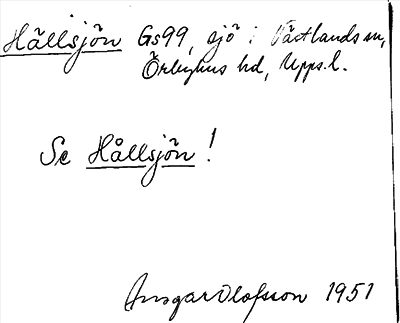 Hällsjön Gs99, sjö i Västlands sn,
Örbyhus hd, Upps. l.
Se Hållsjön!
Ansgar Olofsson 1951